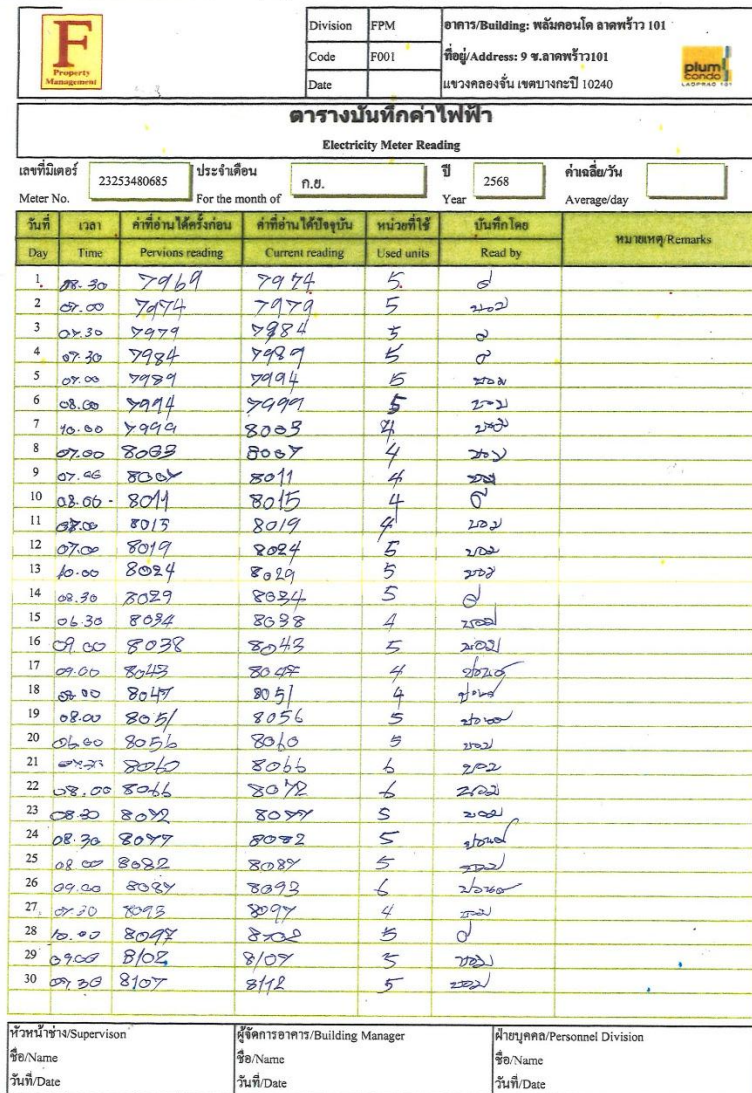 F
Property
Management
Division FPM
Code F001
Date
อาคาร/Building: พลัมคอนโด ลาดพร้าว 101
ที่อยู่/Address: 9 ซ.ลาดพร้าว101
แขวงคลองจั่น เขตบางกะปิ 10240
plum
condo
LADPRAO 101
ตารางบันทึกค่าไฟฟ้า
Electricity Meter Reading
เลขที่มิเตอร์ 23253480685 ประจำเดือน ก.ย. ปี 2568 ค่าเฉลี่ย/วัน
Meter No. For the month of Year Average/day
วันที่ เวลา ค่าที่อ่านได้ครั้งก่อน ค่าที่อ่านได้ปัจจุบัน หน่วยที่ใช้ บันทึกโดย หมายเหตุ/Remarks
Day Time Pervions reading Current reading Used units Read by
1 08.30 7969 7974 5
2 07.00 7974 7979 5
3 07.30 7979 7984 5
4 07.30 7984 7989 5
5 07.00 7989 7994 5
6 08.00 7994 7999 5
7 10.00 7999 8003 4
8 07.00 8003 8007 4
9 07.00 8007 8011 4
10 08.00 8011 8015 4
11 08.00 8015 8019 4
12 07.00 8019 8024 5
13 10.00 8024 8029 5
14 08.30 8029 8034 5
15 06.30 8034 8038 4
16 09.00 8038 8043 5
17 09.00 8043 8047 4
18 8047 8051 4
19 08.00 8051 8056 5
20 06.00 8056 8060 5
21 8060 8066 6
22 08.00 8066 8072 6
23 08.30 8072 8077 5
24 08.30 8077 8082 5
25 08.00 8082 8087 5
26 09.00 8087 8093 6
27 07.30 8093 8097 4
28 10.00 8097 8102 5
29 09.00 8102 8107 5
30 07.30 8107 8112 5
หัวหน้าช่าง/Supervison ผู้จัดการอาคาร/Building Manager ฝ่ายบุคคล/Personnel Division
ชื่อ/Name ชื่อ/Name ชื่อ/Name
วันที่/Date วันที่/Date วันที่/Date